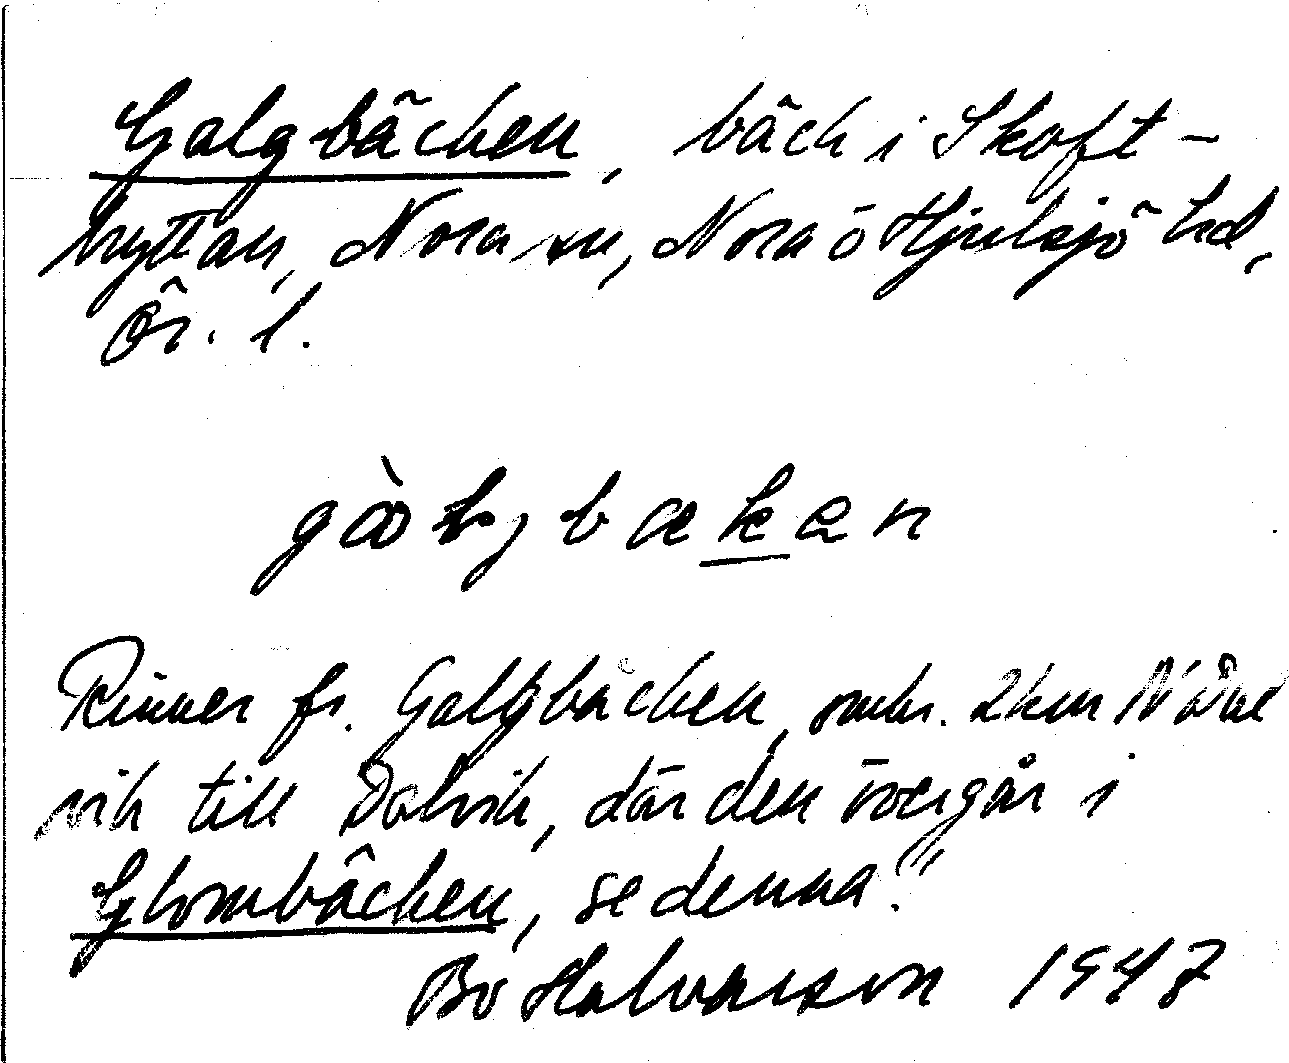 Galgbäcken, bäck i Skaft-
hyttan, Nora sn, Nora ö Hjulsjö hd,
Ör. l.
Rinner fr. Galgbäcken, omkr. 2 km N
vik till Dalvik, där den övergår i
Glombäcken, se denna."
Bo Halvarson 1947